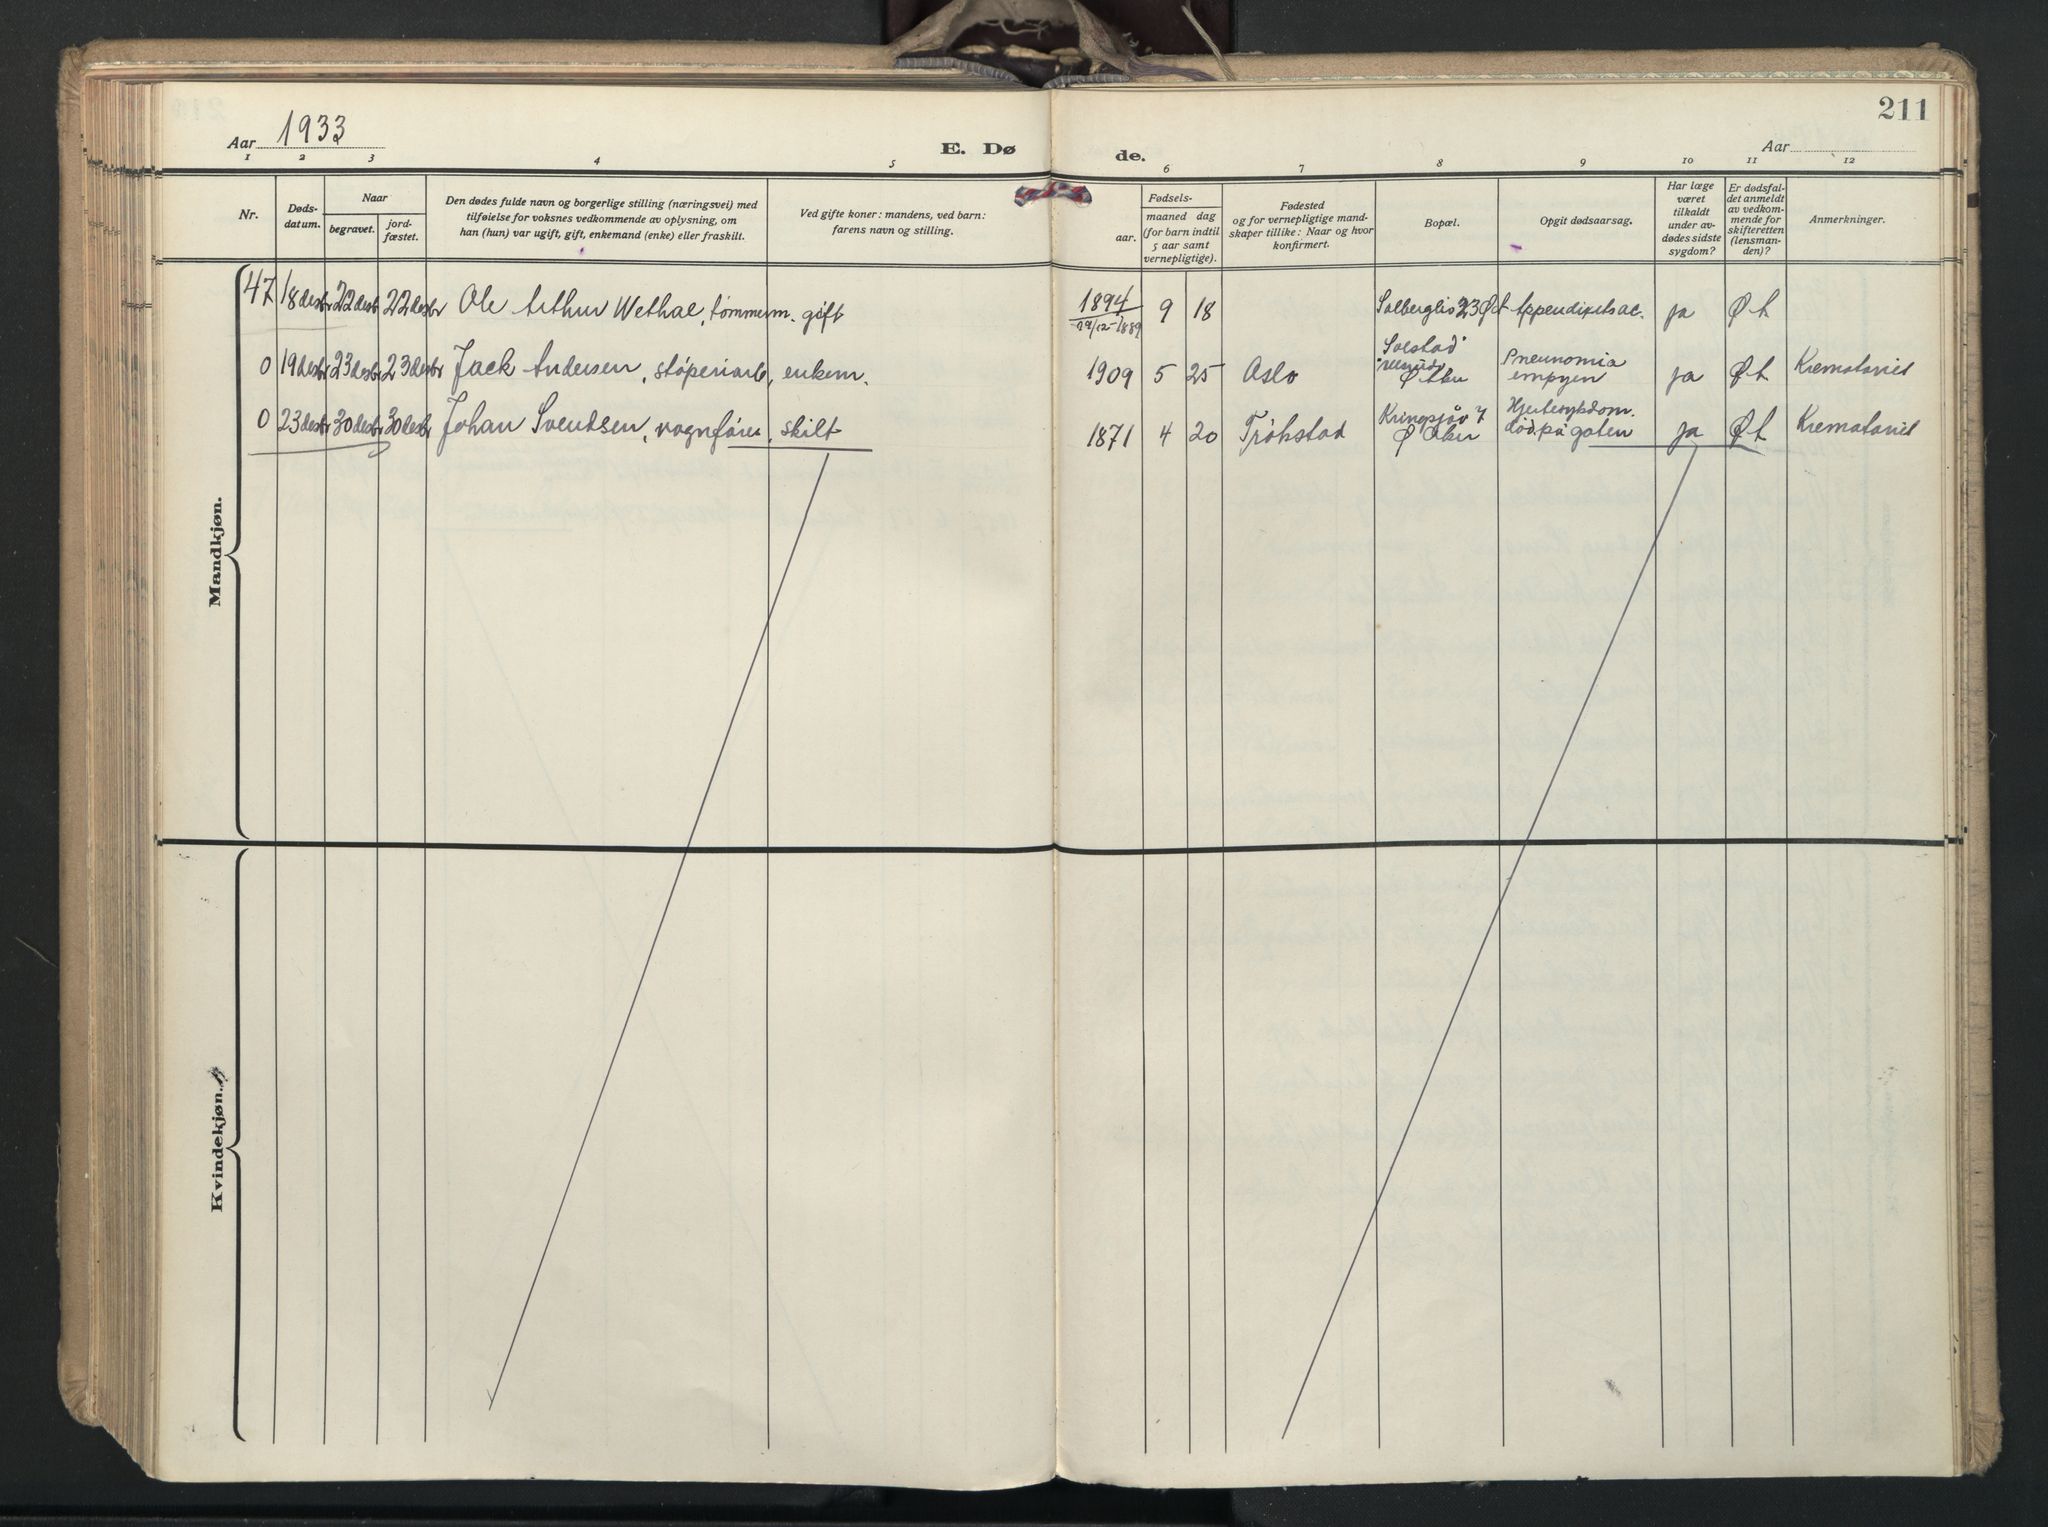 211
Aar 1933
E. Dø
de.
Aar
1 2 3 4 5 6 7 8 9 10 11 12
Nr.
Døds-
datum.
Naar
begravet.
jord-
fæstet.
Den dødes fulde navn og borgerlige stilling (næringsvei) med
tilføielse for voksnes vedkommende av oplysning, om
han (hun) var ugift, gift, enkemand (enke) eller fraskilt.
Ved gifte koner: mandens, ved barn:
farens navn og stilling.
Fødsels-
aar.
maaned dag
(for barn indtil
5 aar samt
vernepligtige).
Fødested
og for vernepligtige mand-
skaper tillike: Naar og hvor
konfirmert.
Bopæl.
Opgit dødsaarsag.
Har læge
været
tilkaldt
under av-
dødes sidste
sygdom?
Er dødsfal-
det anmeldt
av vedkom-
mende for
skifteretten
(lensman-
den)?
Anmerkninger.
Mandkjøn.
47 18 desbr 22 desbr 22 desbr Ole Arthur Wethal, tømmerm. gift 1894 9 18 Solberglis 23 Ø A Appendix ja Ø A
29/12-1889
0 19 desbr 23 desbr 23 desbr Jack Andersen, støperiarb, enkem. 1909 5 25 Oslo Solstad Ø Aker Pneunomia empyen ja Ø A Krematoriet
0 23 desbr 30 desbr 30 desbr Johan Svendsen, vognfører, skilt 1871 4 20 Trøkstad Kringsjåv 7 Ø Aker Hjertesykdom. død på gaten ja Ø A Krematoriet
Kvindekjøn.